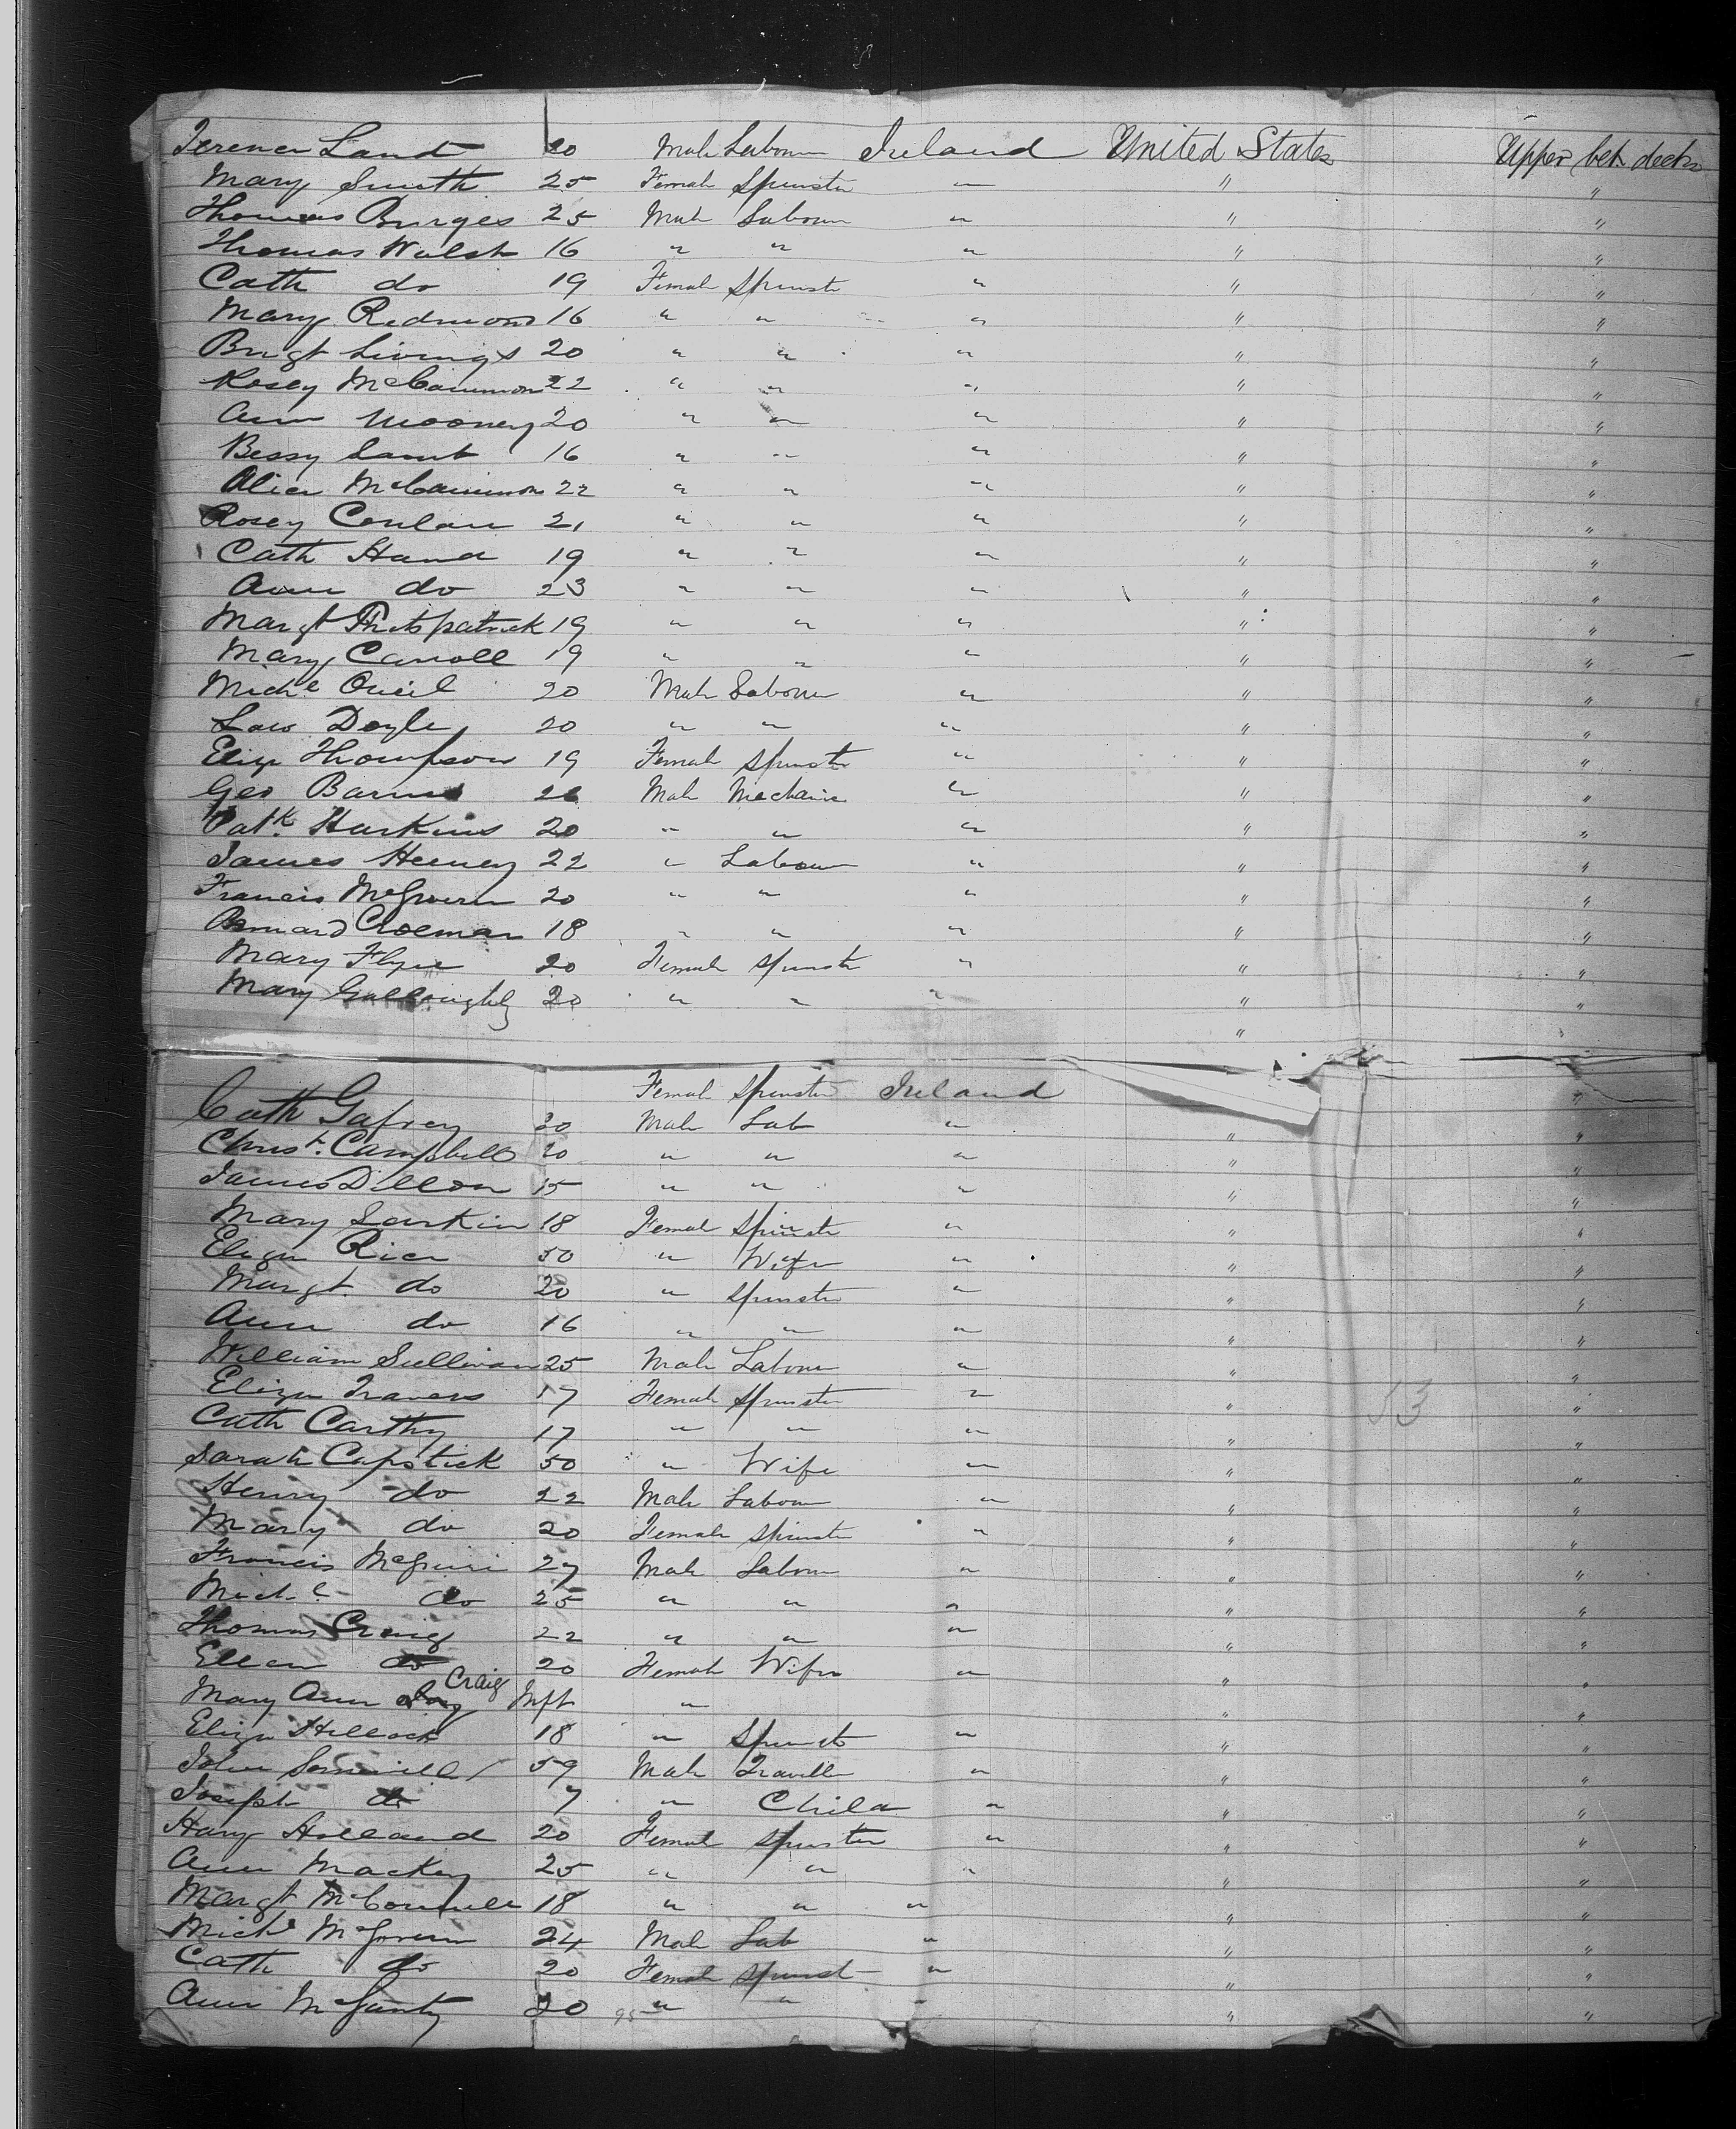 Terence Land 20 Male Labour Ireland United States Upper bet. decks
Mary Smith 25 Female Spinster " " "
Thomas Burges 25 Male Labour " " "
Thomas Walsh 16 " " " " "
Cath do 19 Female Spinst " " "
Mary Redmond 16 " " " " "
Brigt Livings 20 " " " " "
Rosey McCammon 22 " " " " "
Ann Mooney 20 " " " " "
Bessy Lamb 16 " " " " "
Alice McCammon 22 " " " " "
Rosey Conlan 21 " " " " "
Cath Hand 19 " " " " "
Ann do 23 " " " " "
Margt Fitspatrick 19 " " " " "
Mary Carroll 19 " " " " "
Michl Oneil 20 Male Labour " " "
Law Doyle 20 " " " " "
Eliza Thompson 19 Female Spinster " " "
Geo Barnes 26 Male Mechanic " " "
Patk Harkins 20 " " " " "
James Heeney 22 " Labour " " "
Francis McGovern 20 " " " " "
Bernard Coleman 18 " " " " "
Mary Flynn 20 Female Spinster " " "
Mary Golloughly 20 " " " " "
"
Female Spinster Ireland "
Cath Gafney 20 Male Lab " " "
Christ. Campbell 20 " " " " "
James Dillon 15 " " " " "
Mary Larkin 18 Female Spinster " " "
Eliza Rice 50 " Wife " " "
Margt do 20 " Spinster " " "
Ann do 16 " " " " "
William Sullivan 25 Male Labour " " "
Eliza Travers 17 Female Spinster " " "
Cath Carthy 17 " " " " "
Sarah Capstick 50 " Wife " " "
Henry do 22 Male Labour " " "
Mary do 20 Female Spinster " " "
Francis McGuire 27 Male Labour " " "
Michl do 25 " " " " "
Thomas Craig 22 " " " " "
Ellen do 20 Female Wife " " "
Mary Ann Craig Inft " " "
Eliza Hillock 18 " Spinst " " "
John Somerville 59 Male Traveller " " "
Joseph do 7 " Child " " "
Mary Holland 20 Female Spinster " " "
Ann Mackey 25 " " " " "
Margt McConnell 18 " " " " "
Michl McGovern 24 Male Lab " " "
Cath do 20 Female Spinst " " "
Ann McGanty 20 " " " " "